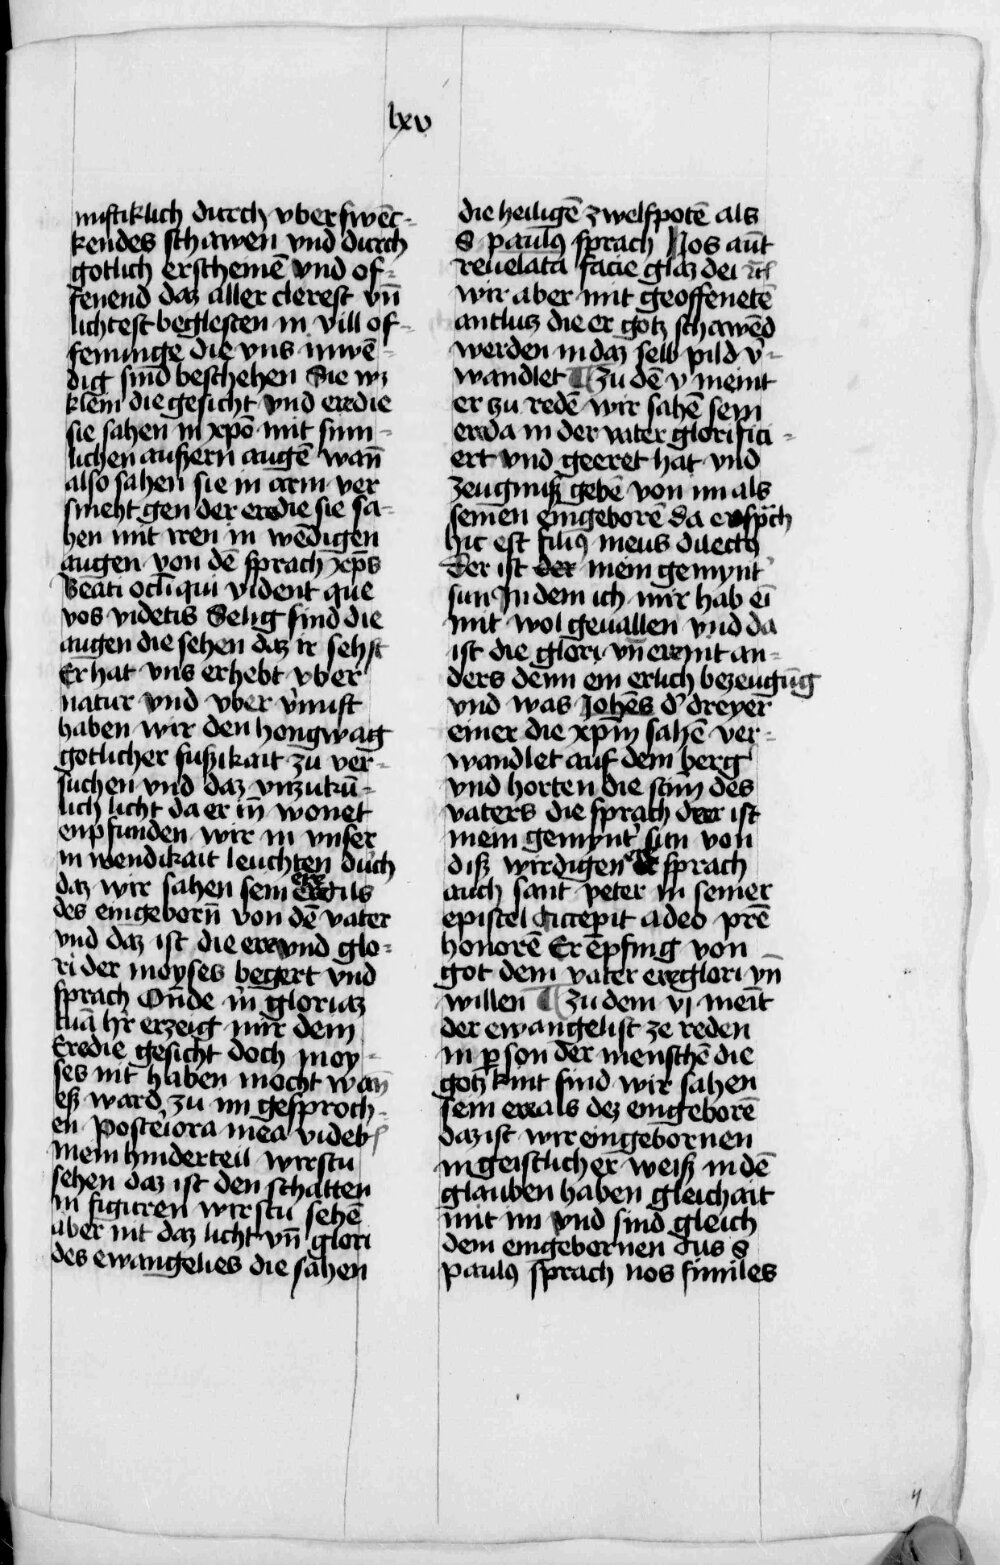 lxv
mistiklich durch vberswēc-
kendes schawen vnd durch
gotlich erscheinē vnd of-
fenend daz aller clerest vn̄
lichtest beglesten in vill of-
fenunge die vns inwē-
dig sind beschehen Sie wz
klein die gesicht vnd ere die
sie sahen in xp̄o mit sinn-
lichen aussern augē wan̄
also sahen sie in arm ver
smeht gen der ere die sie sa-
hen mit iren in wēdigen
augen von dē sprach xp̄s
Beati ocl̄i qui vident que
vos videtis Selig sind die
augen die sehen daz ir sehst
Er hat vns erhebt vber
natur vnd vber v̉nuft
haben wir den hongwag
gotlicher sussikait zu ver-
suchen vnd daz vnzukū-
lich licht da er in̄ wonet
enpfunden wir in vnser
in wendikait leuchten duch
daz wir sahen sein ere als
des eingeborn̄ von dē vater
vnd daz ist die ere vnd glo-
ri der moyses begert vnd
sprach On̄de m̉ gloriaz
tuā hr̉ erzeig mir dein
Ere die gesicht doch moy-
ses nit haben mocht wan̄
ess ward zu im gesproch-
en Posteriora mea videb
mein hinderteil wirstu
sehen daz ist den schatten
in figuren wirstu sehē
aber nit daz licht vn̄ glori
des ewangelies die sahen
die heiligē zwelfpotē als
S paulus sprach Nos aūt
reuelata facie gl̄az dei
wir aber mit geoffenetē
antlutz die er gotz schawēd
werden in daz selb pild v̉-
wandlet ¶ Zu dē v meint
er zu redē wir sahē sein
ere da in der vater glorifici-
ert vnd geeret hat vnd
zeugnuss gebē von im als
seinen eingeborē da er sp̄ch
hic est filiꝰ meus dilectꝰ
Der ist der mein gemynt
sun In dem ich mir hab ei
mit wol geuallen vnd da
ist die glori vn̄ ere nit an-
ders denn ein erlich bezeugūg
vnd was Johēs d̉ dreyer
einer die xp̄m sahē ver-
wandlet auf dem berg
vnd horten die stim des
vaters die sprach der ist
mein gemynt̉ sun von
diss wirdigen ere sprach
auch sant peter in seiner
epistel Accepit a deo pr̄e
honorē Er ēpfing von
got dem vater ere glori vn̄
willen ¶ Zu dem vj meīt
der ewangelist ze reden
in ꝑson der menschē die
gotz kint sind wir sahen
sein ere als dez eingeborē
daz ist wir eingebornen
in geistlicher weiss in dē
glauben haben gleichait
mit im vnd sind gleich
dem eingebornen dus S
paulꝰ sprach nos similes